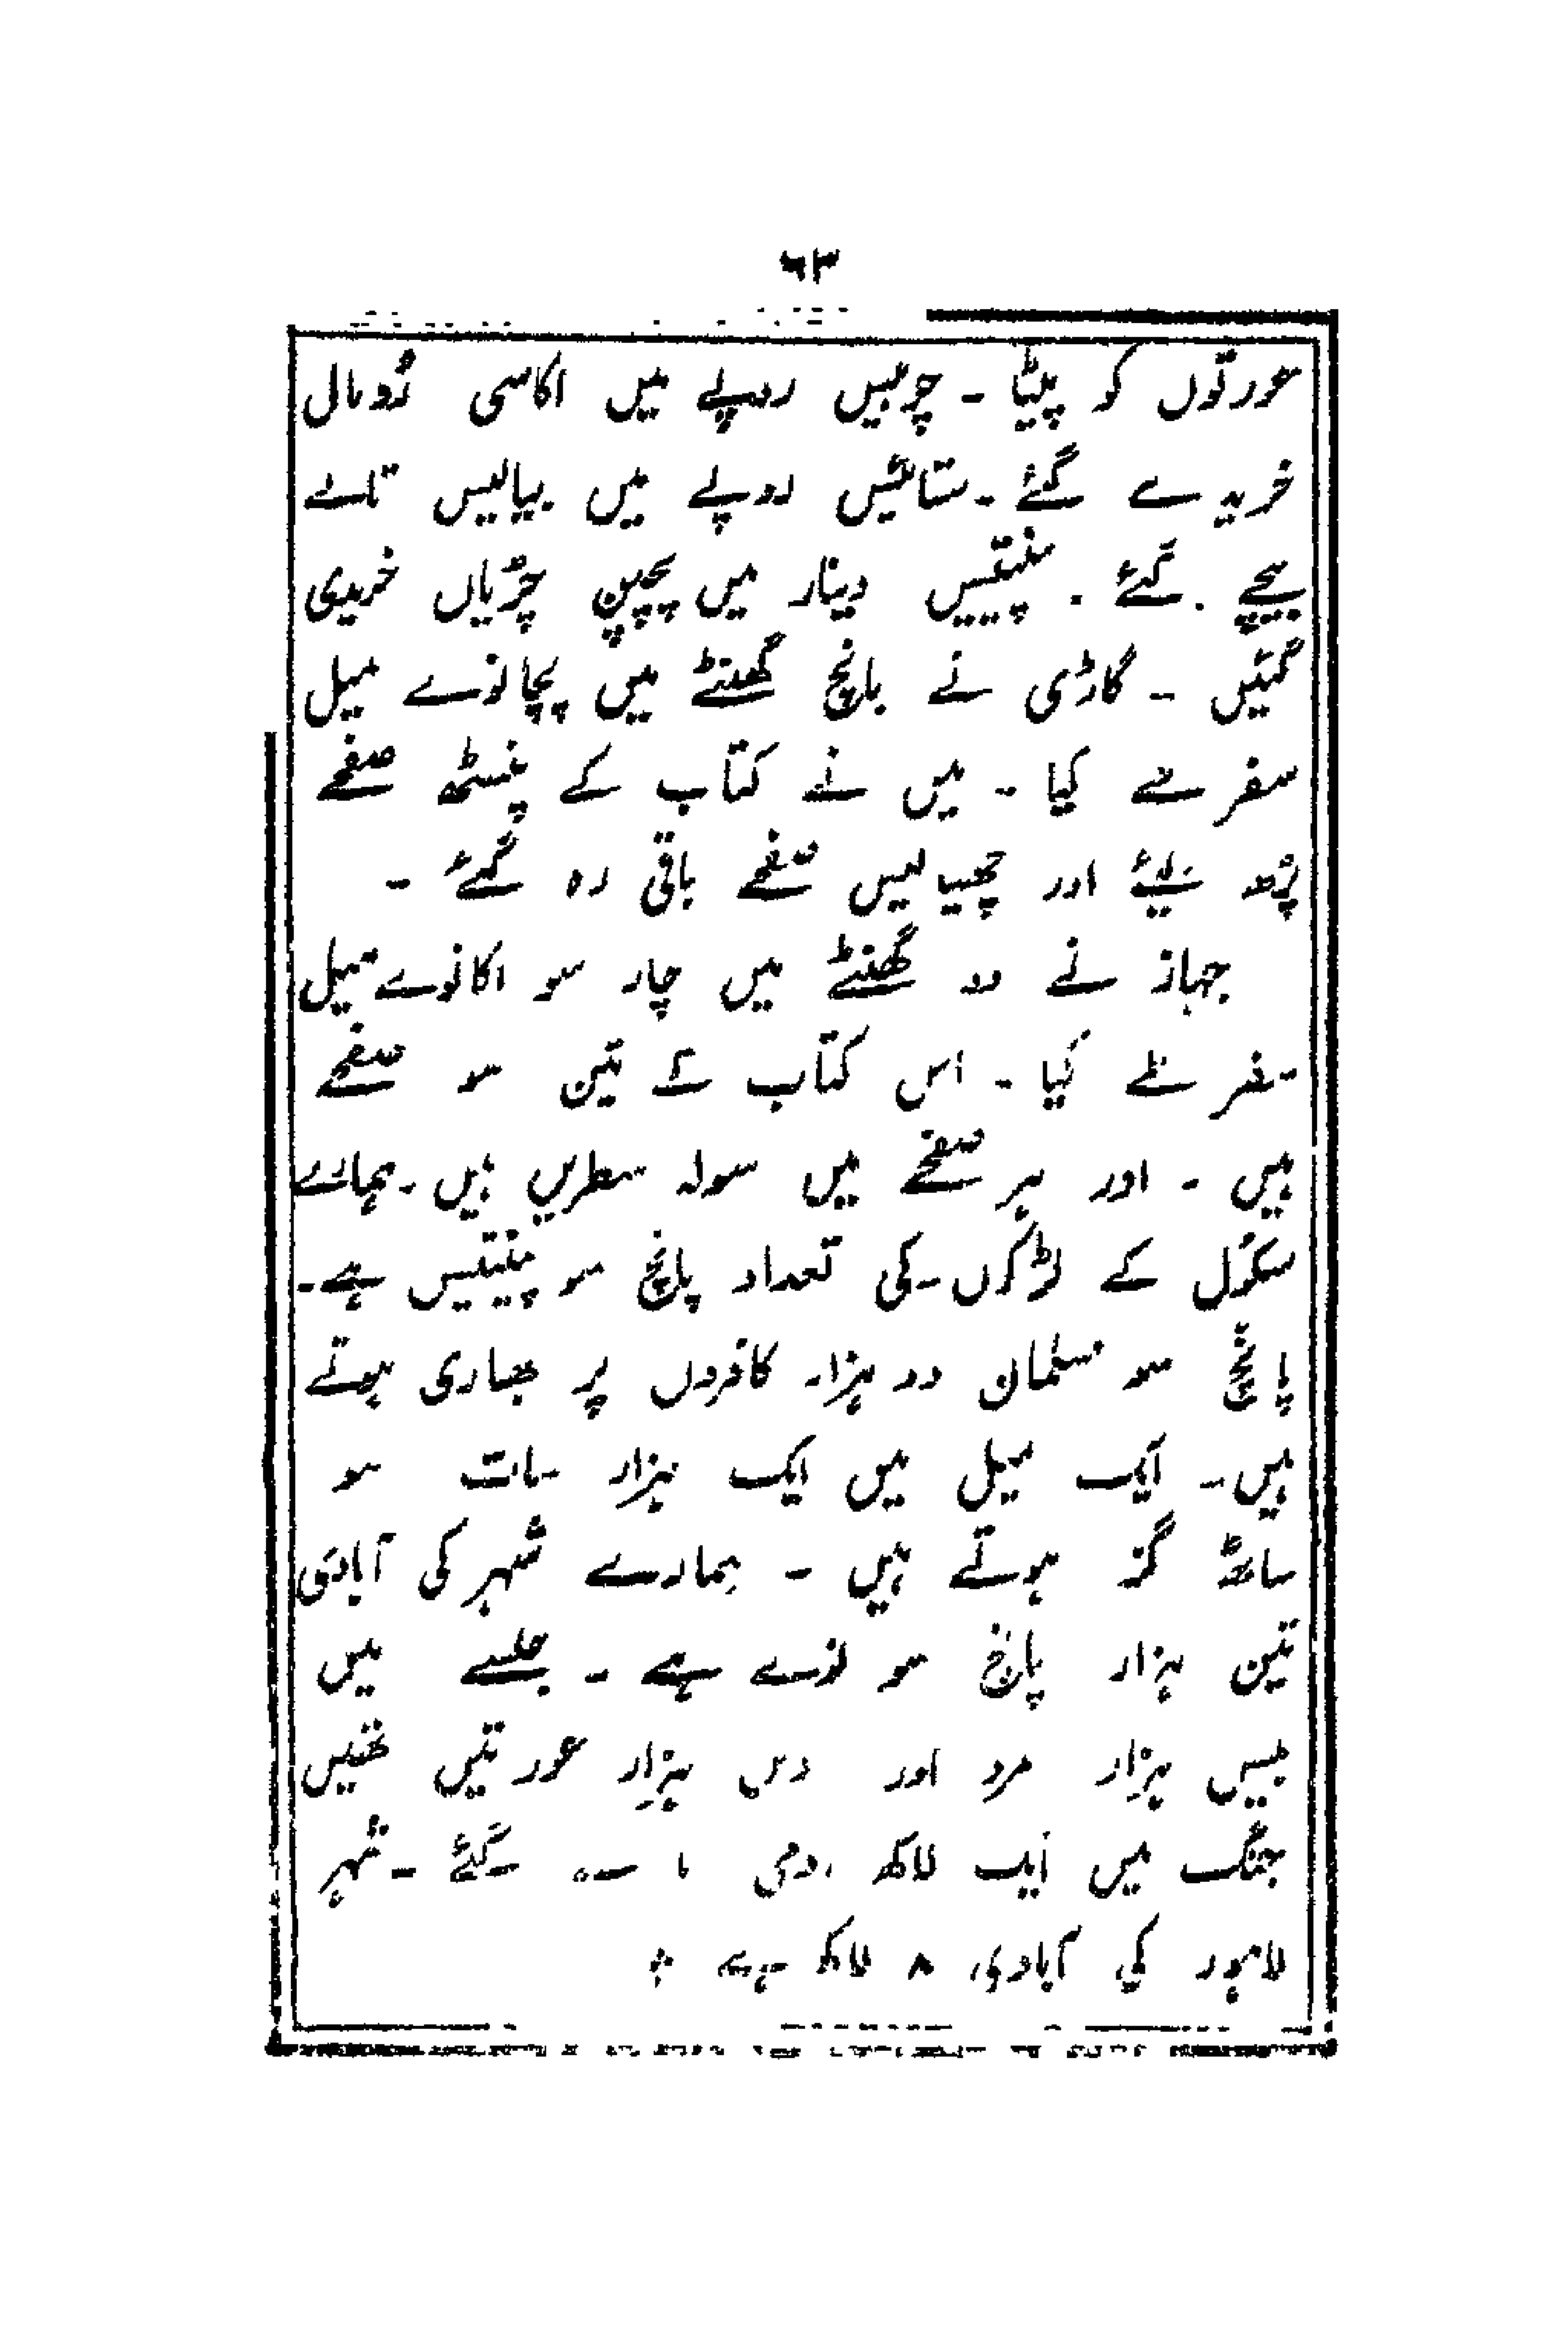 ٦٣
عورتوں کو پیٹا - چوبیس روپے میں اکاسی رُومال
خریدے گئے - ستائیس روپے میں بیالیس تالے
بیچے گئے - پینتیس دینار میں پچپن چڑیاں خریدی
گئیں - گاڑی نے پانچ گھنٹے میں پچانوے میل
سفر طے کیا - میں نے کتاب کے پنسٹھ صفحے
پڑھ لیئے اور چھیالیس صفحے باقی رہ گئے -
جہاز نے دو گھنٹے میں چار سو اکانوے میل
سفر طے کیا - اس کتاب کے تین سو صفحے
ہیں - اور ہر صفحے میں سولہ سطریں ہیں - ہمارے
سکول کے لڑکوں کی تعداد پانچ سو پینتیس ہے -
پانچ سو مسلمان دو ہزار کافروں پر بھاری ہوتے
ہیں - ایک میل میں ایک ہزار سات سو
ساٹھ گز ہوتے ہیں - ہمارے شہر کی آبادی
تین ہزار پانچ سو نوے ہے - جلسے میں
بیس ہزار مرد اور دس ہزار عورتیں تھیں
جنگ میں ایک لاکھ آدمی گئے - شہر
لاہور کی آبادی ٨ لاکھ ہے ÷